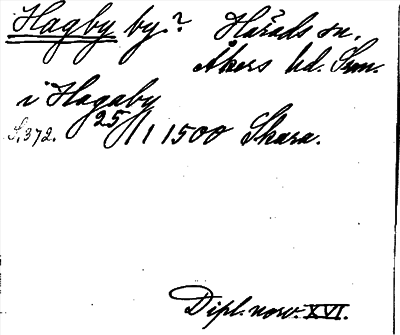 Hagby by? Härads sn.
Åkers hd. Srm.
i Hagaby
S. 372. 25/1 1500 Skara.
Dipl. norv. XVI.